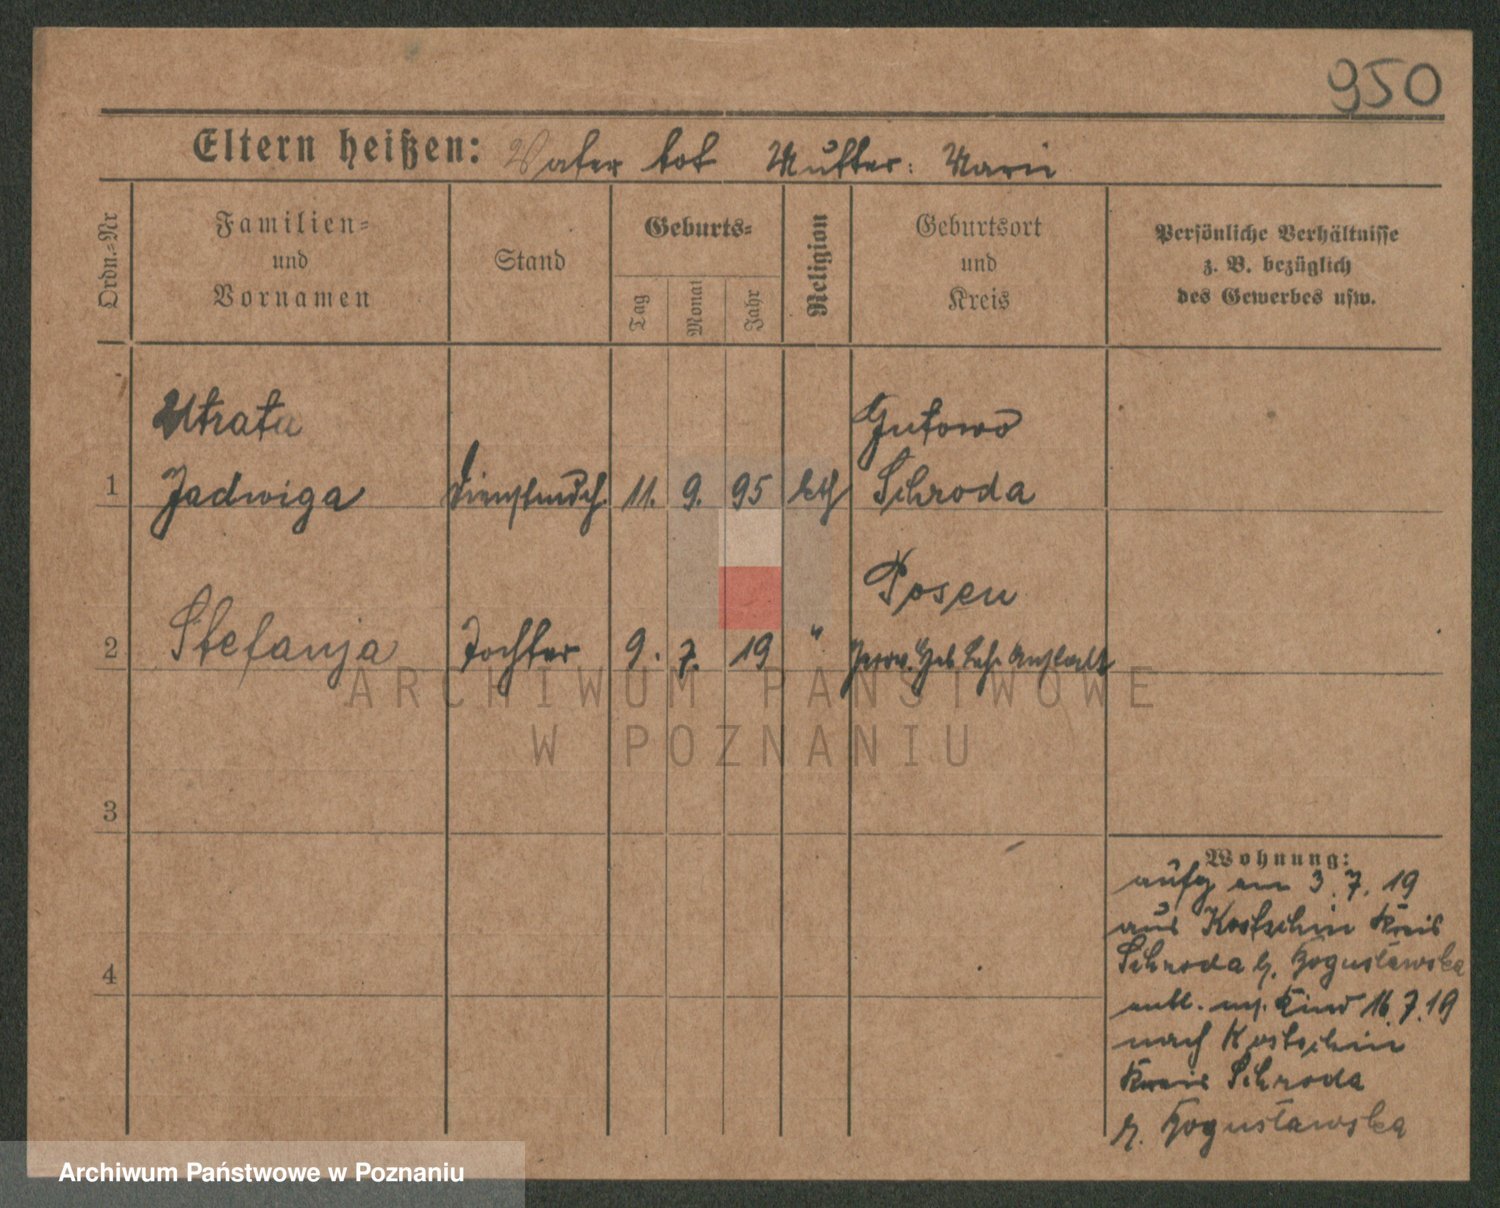 950
Eltern heißen: Vater tot Mutter: Marie
Ordn.-Nr
Familien-
und
Vornamen
Stand
Geburts-
Tag
Monat
Jahr
Religion
Geburtsort
und
Kreis
Persönliche Verhältnisse
z. B. bezüglich
des Gewerbes usw.
Utrata Gutowo
1 Jadwiga Dienstmdch. 11. 9. 95 kth Schroda
Posen
2 Stefanja Tochter 9. 7. 19 " Prov. Heb. Lehr Anstalt
3
4
Wohnung:
aufg am 3. 7. 19
aus Kostschin Kreis
Schroda b. Bogusławska
entl. m. Kind 16.7.19
nach Kostschin
Kreis Schroda
z. Bogusławska
ARCHIWUM PAŃSTWOWE
W POZNANIU
Archiwum Państwowe w Poznaniu